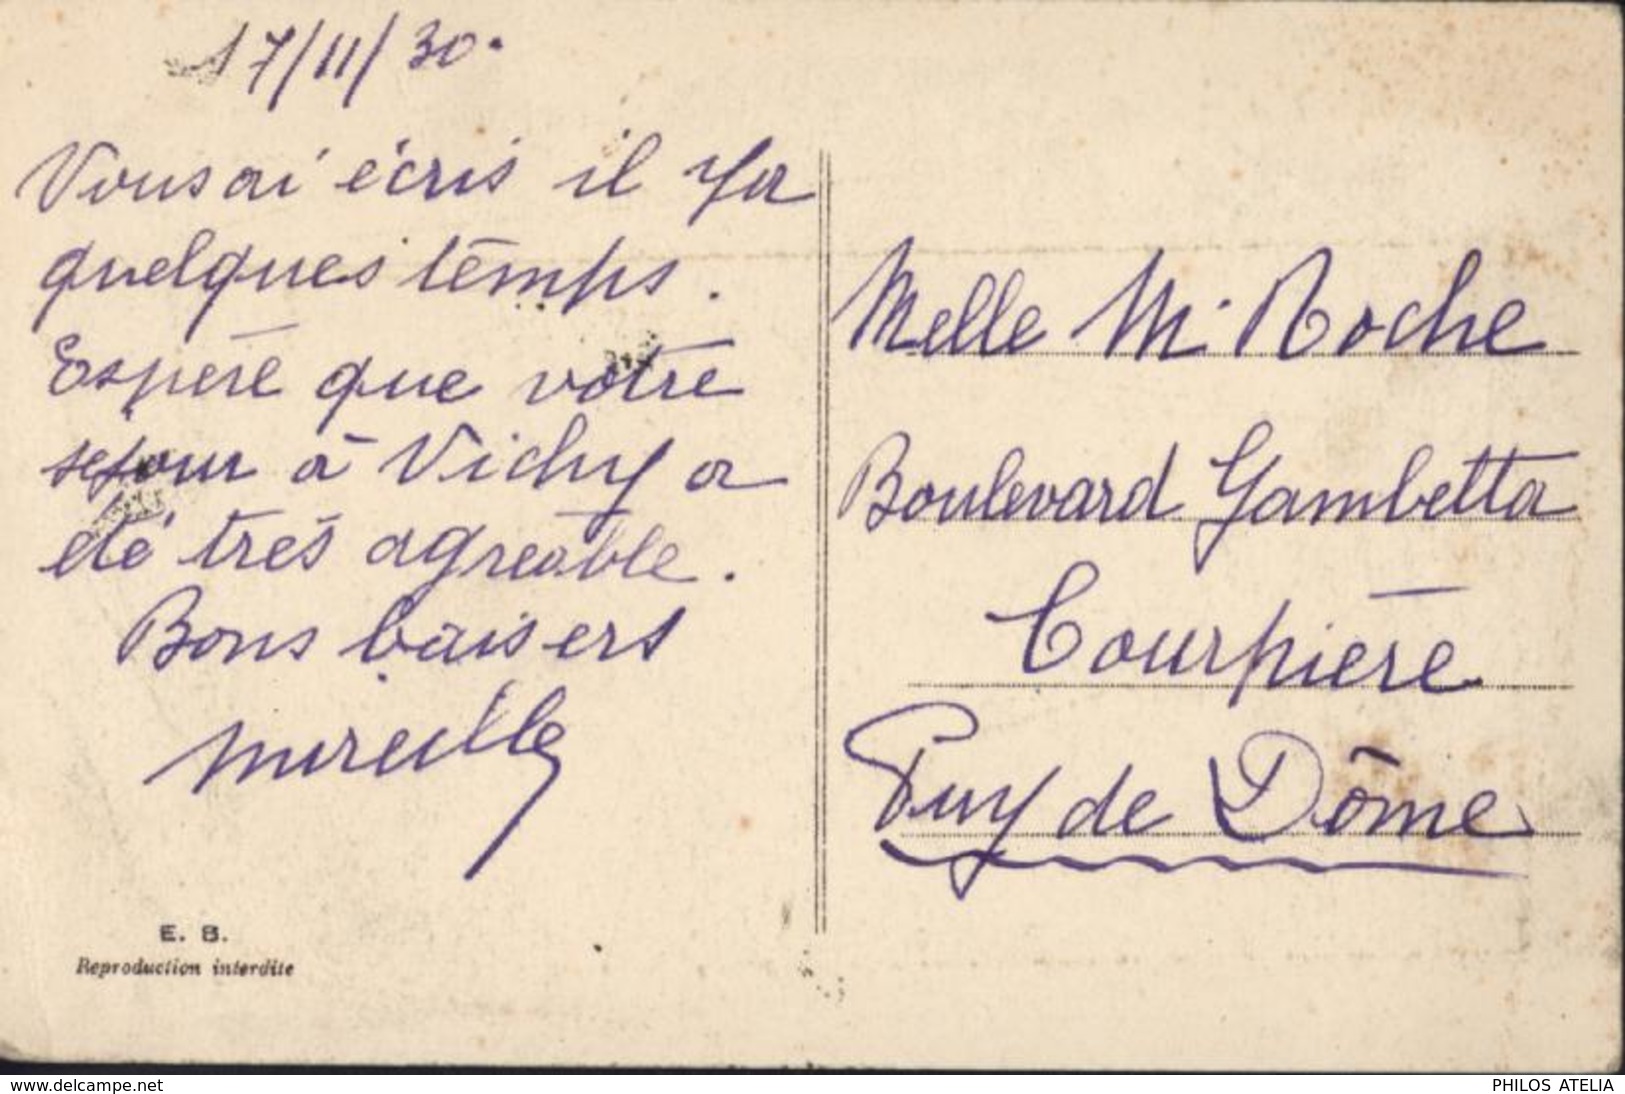 17/11/30.
Vous ai écris il ya
quelques temps.
Espère que votre
sejour à Vichy a
été très agréable.
Bons baisers
Mireille
E. B.
Reproduction interdite
Melle M. Roche
Boulevard Gambetta
Courpière
Puy de Dôme
www.delcampe.net
PHILOS ATELIA